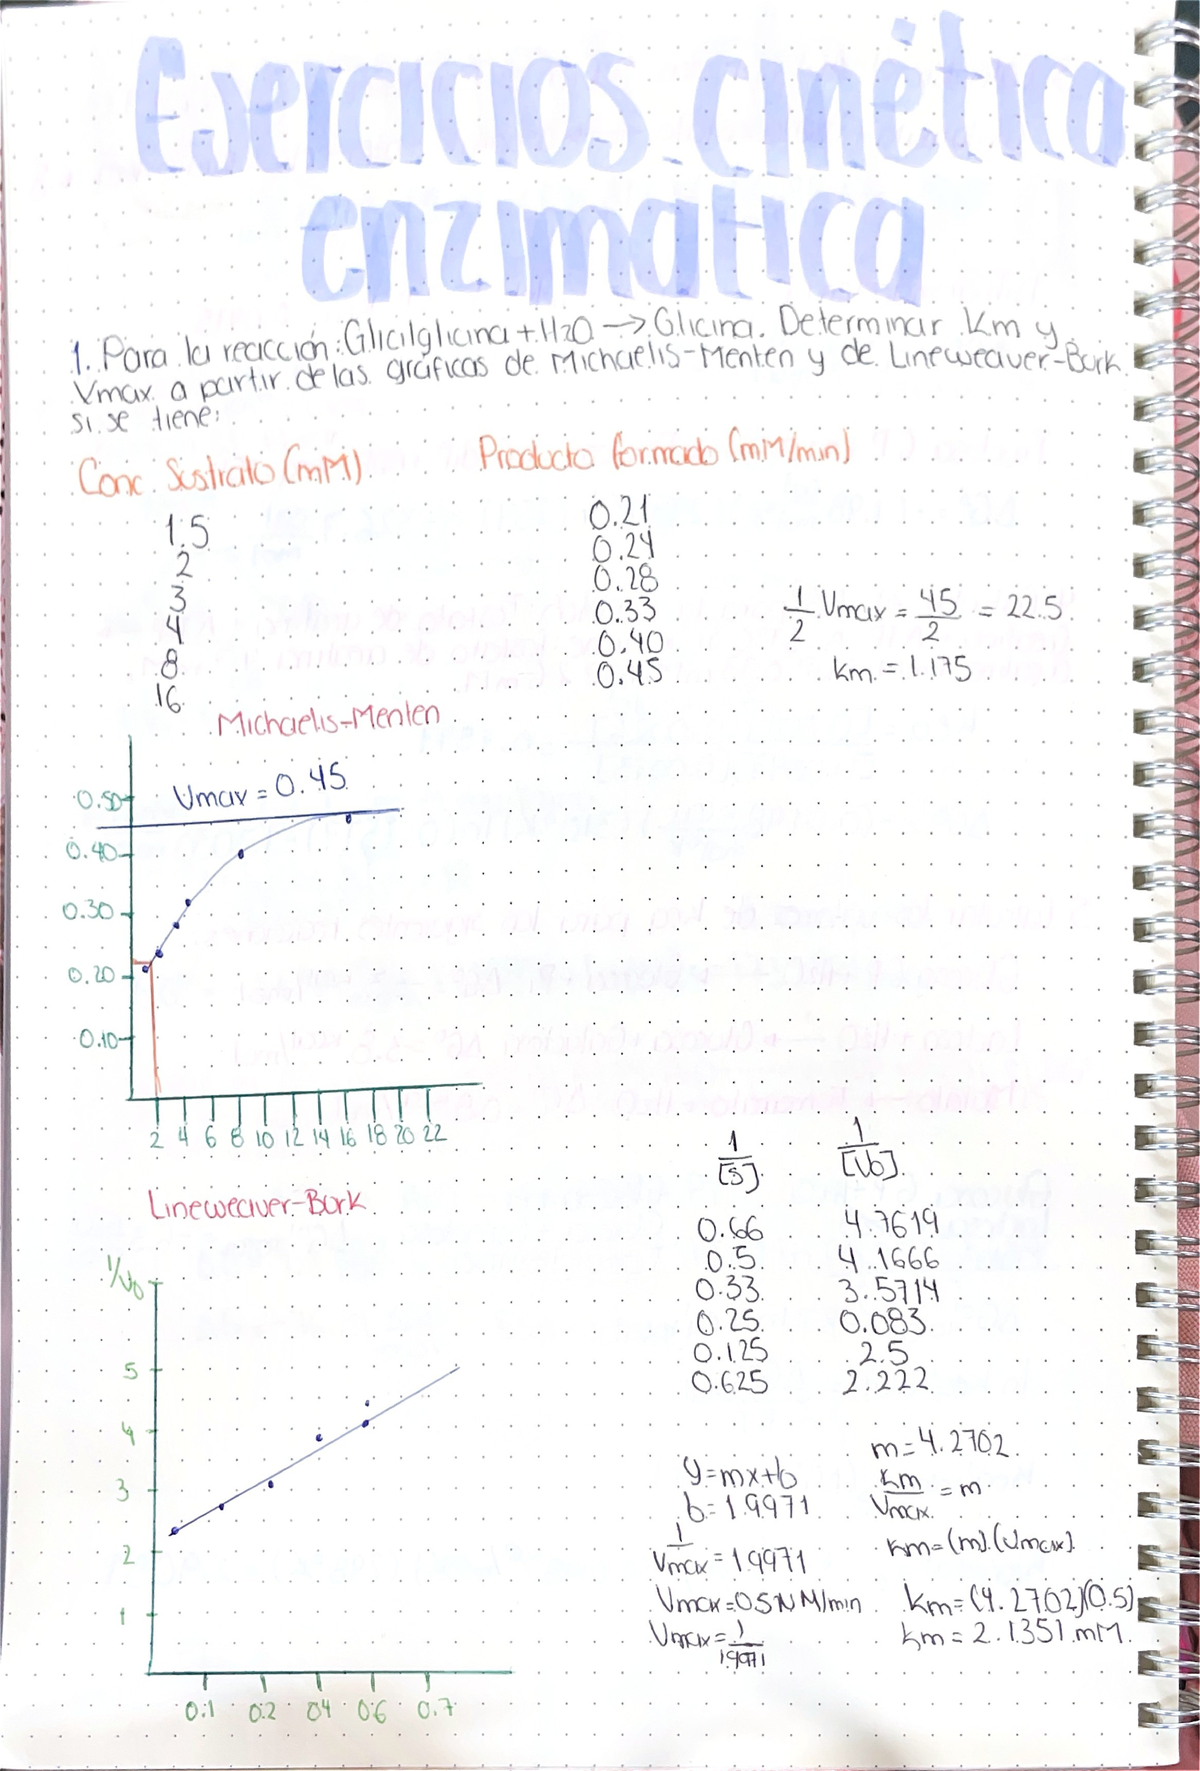 Ejercicios cinética
enzimatica
1. Para la reacción: Glicilglicina + H2O → Glicina. Determinar Km y
Vmax a partir de las gráficas de Michaelis-Menten y de Lineweaver-Burk
si se tiene:
Conc Sustrato (mM) Producto formado (mM/min)
1.5 0.21
2 0.24
3 0.28
4 0.33
8 0.40
16 0.45
1/2 Vmax = 45/2 = 22.5
km = 1.175
Michaelis-Menten
Vmax = 0.45
0.50
0.40
0.30
0.20
0.10
2 4 6 8 10 12 14 16 18 20 22
Lineweaver-Burk
1/[S] 1/[Vo]
0.66 4.7619
0.5 4.1666
0.33 3.5714
0.25 0.083
0.125 2.5
0.625 2.222
1/Vo
5
4
3
2
1
0.1 0.2 04 06 0.7
y=mx+b
b=1.9971
1/Vmax = 1.9971
Vmax=0.5 M/min
Vmax=1/1.9971
m=4.2702
km/Vmax = m
km=(m).(Vmax)
km=(4.2702)(0.5)
km=2.1351 mM